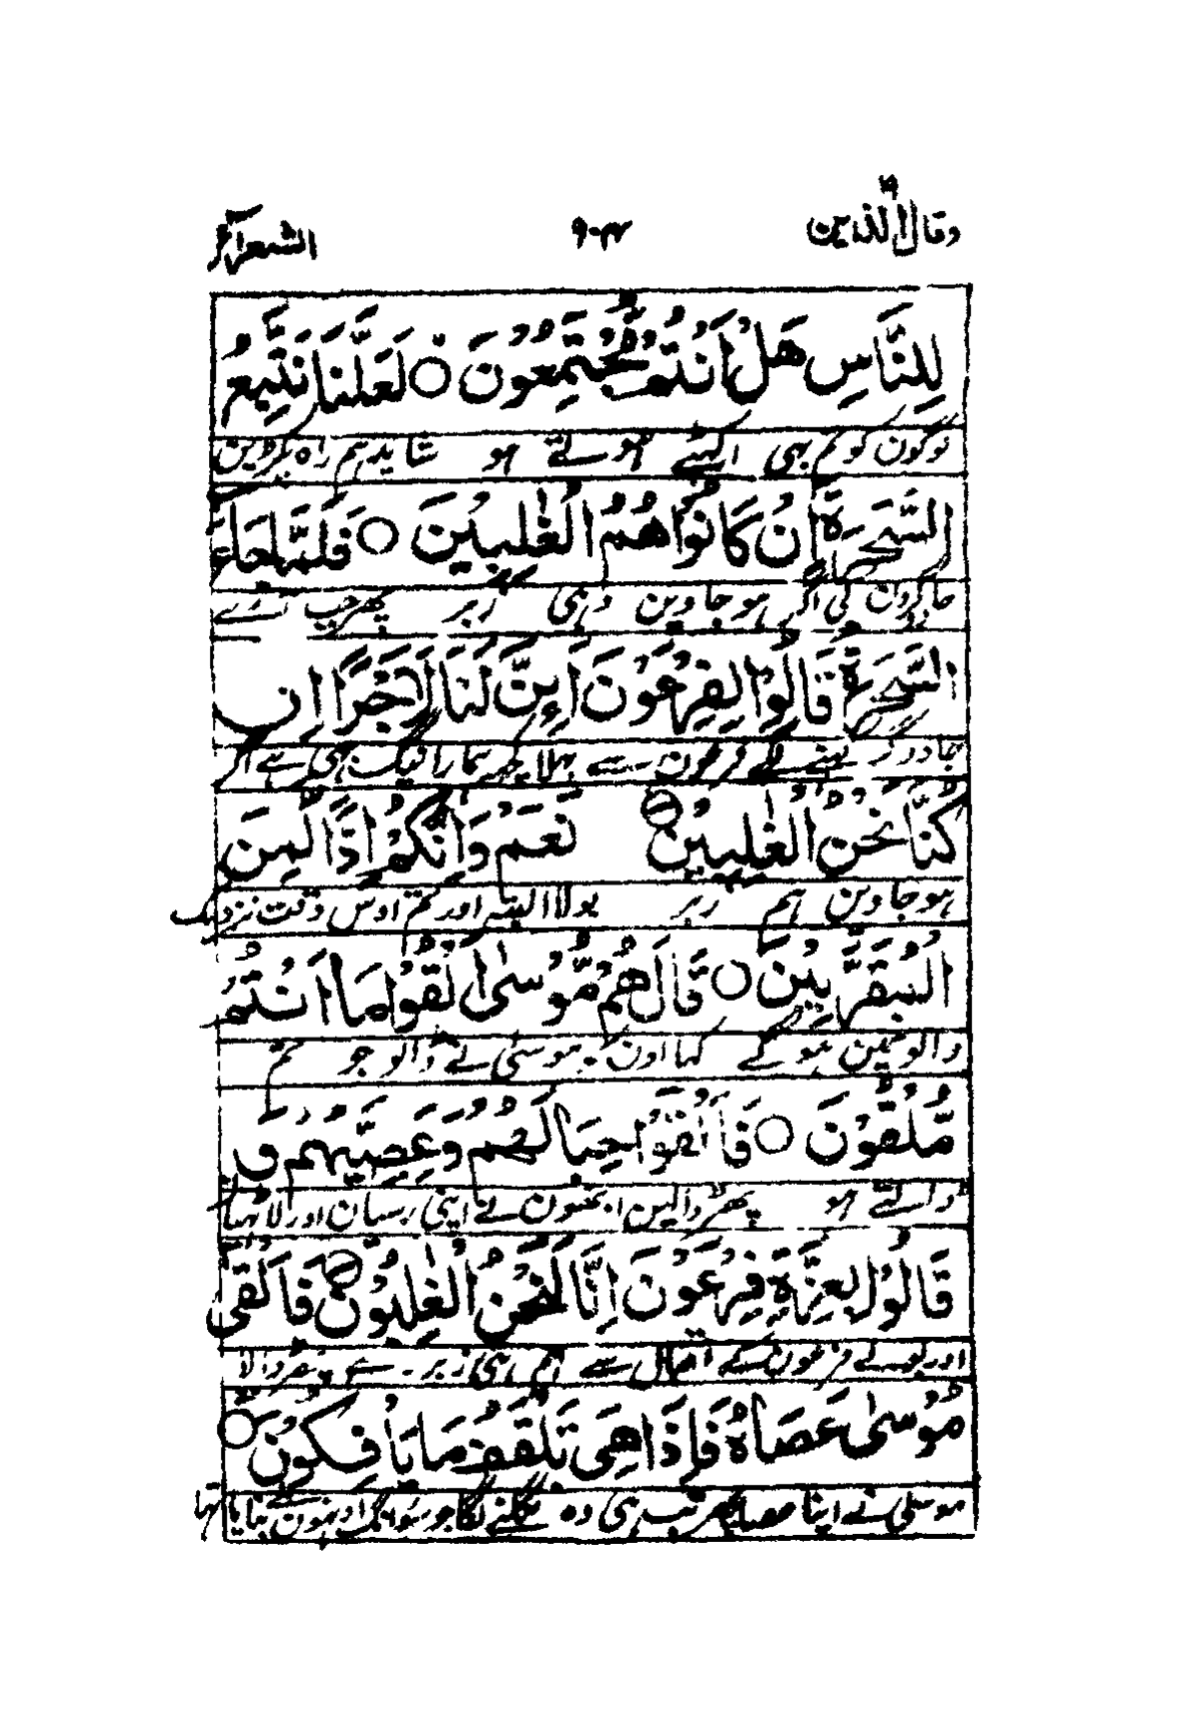 وقال الذين ۱۹ ۹۰۴ الشعراء ۲۶
لِلنَّاسِ هَلْ اَنْتُمْ مُّجْتَمِعُوْنَ ○ لَعَلَّنَا نَتَّبِعُ
لوگون کو تم بھی اکٹھے ہوتے ہو شاید ہم راہ پکڑین
السَّحَرَةَ اِنْ كَانُوْا هُمُ الْغٰلِبِيْنَ ○ فَلَمَّا جَآءَ
جادگرون کی اگر ہو جاوین وہی زبر پھر جب آئے
السَّحَرَةُ قَالُوْا لِفِرْعَوْنَ اَئِنَّ لَنَا لَاَجْرًا اِنْ
جادوگر کہنے لگے فرعون سے بھلا کچھ ہمارا نیگ بھی ہے اگر
كُنَّا نَحْنُ الْغٰلِبِيْنَ ○ نَعَمْ وَاِنَّكُمْ اِذًا لَّمِنَ
ہو جاوین ہم زبر بولا البتہ اور تم اوس وقت نزدیک
الْمُقَرَّبِيْنَ ○ قَالَ لَهُمْ مُّوْسٰى اَلْقُوْا مَا اَنْتُمْ
والومین ہوگے کہا اون کو موسیٰ نے ڈالو جو تم
مُّلْقُوْنَ ○ فَاَلْقَوْا حِبَالَهُمْ وَعِصِيَّهُمْ وَ
ڈالتے ہو پھر ڈالین انھون نے اپنی رسیان اور لاٹھیا
قَالُوْا بِعِزَّةِ فِرْعَوْنَ اِنَّا لَنَحْنُ الْغٰلِبُوْنَ ○ فَاَلْقٰى
اور بولے فرعون کے اقبال سے ہم ہی زبر رہے پھر ڈالا
مُوْسٰى عَصَاهُ فَاِذَا هِىَ تَلْقَفُ مَا يَاْفِكُوْنَ ○
موسیٰ نے اپنا عصا پھر تب ہی وہ نگلنے لگا جو سوانگ اونہون نے بنایا تھا